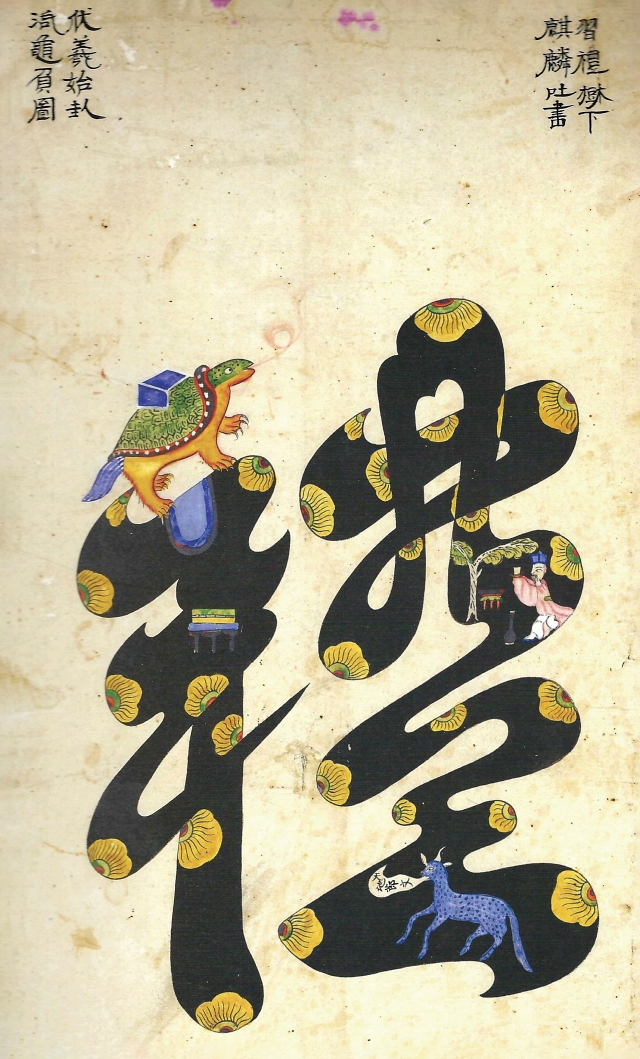 習禮樹下
麒麟吐書
伏羲始卦
洛龜負圖
禮